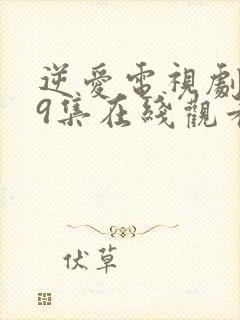 逆愛電視劇
9集在綫觀看
伏草